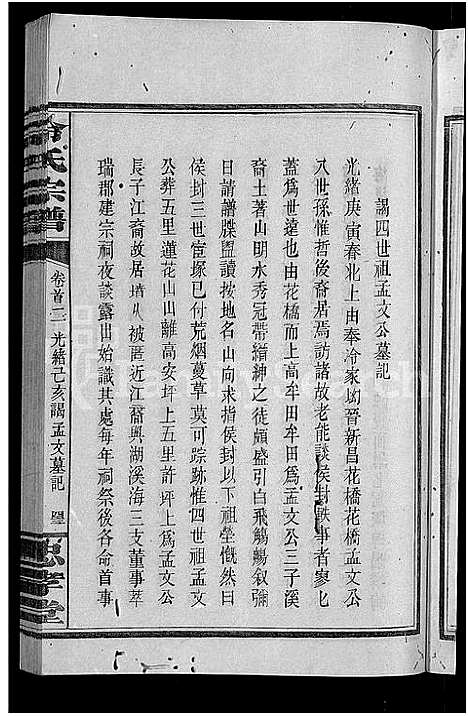 謁四世祖孟文公墓記
光緒庚寅春北上由奉冷家坳晉新昌花橋花橋孟文公
八世孫惟哲後裔居焉訪諸故老能談侯封軼事者寥匕
蓋為世遠也由花橋而上高牟田牟田為孟文公三子溪
裔土著山明水秀冠帶縉紳之徒頗盛引白飛觴觴叙彌
日請譜牒盥讀按地名山向求指侯封以下祖塋慨然曰
侯封三世宦塚已付荒烟蔓草莫可踪跡惟四世祖孟文
公葬五里蓮花山山離高安坪上五里許坪上為孟文公
長子江裔故居墳乆被匿近江裔興湖溪海三支董事萃
瑞郡建宗祠夜談露出始識其處每年祠祭後各命首事
冷氏宗譜
卷首二
光緒己亥謁孟文墓記
忠孝堂